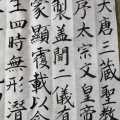 大唐三藏聖教
序太宗文皇帝
製蓋聞二儀有
象顯覆載以含
生四時無形潛